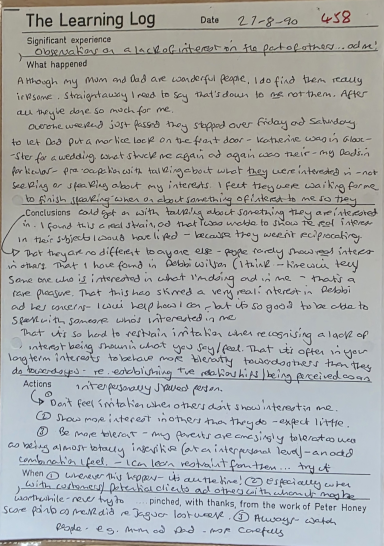 The Learning Log Date 27-8-90 458
Significant experience
Observations on a lack of interest on the part of others... adm!
What happened
Although my Mum and Dad are wonderful people, I do find them really
irksome. Straightaway I need to say that's down to me not them. After
all they've done so much for me.
Over one weekend just passed they stopped over Friday ad Saturday
to let Dad put a mortice lock on the front door - Katherine was in Glouc-
ster for a wedding. What struck me again ad again was their - my Dad's in
particular - preoccupation with talking about what they were interested in - not
seeking or speaking about my interests. I felt they were waiting for me
to finish speaking when on about something of interest to me so they
Conclusions could get on with talking about something they are interested
in. I found this a real strain, ad that I was unable to show the real interest
in their subjects I would have liked - because they weren't reciprocating.
That they are no different to anyone else - people rarely show real interest
in others. That I have found in Debbi Wilson (I think - time will tell)
Some one who is interested in what I'm doing and in me - that's a
rare pleasure. That this has stirred a very real interest in Debbi
ad her concerns - I will help how I can, but its so good to be able to
speak with someone who's interested in me
That its so hard to restrain irritation when recognising a lack of
interest being shown in what you say/feel. That its often in your
long term interests to behave more tolerantly towards others than they
do towards you - re. establishing +ve relationships/being perceived as an
Actions interpersonally skilled person.
① Don't feel irritation when others don't show interest in me.
② Show more interest in others than they do - expect little.
③ Be more tolerant - my parents are amazingly tolerant as well
as being almost totally insensitive (at an interpersonal level) - an odd
combination I feel. - I can learn restraint from them... try it
When ① whenever this happens - its all the time! ② especially when
with customers/potential clients ad others with whom it may be
worthwhile - never try to pinched, with thanks, from the work of Peter Honey
score points as medid re Jaguar last week. ③ Always - watch
people - e.g. mum ad Dad - more carefully